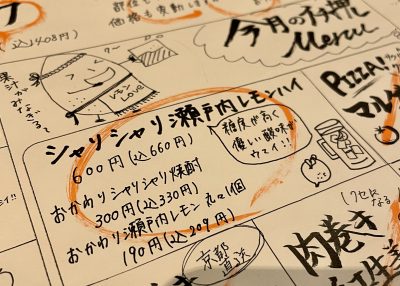 今月のオススメ
Menu
(込1408円)
レモン
LOVE
シャリシャリ瀬戸内レモンハイ
600円(込660円)
おかわりシャリシャリ焼酎
300円(込330円)
おかわり瀬戸内レモン丸々1個
190円(込209円)
糖度が高く
優しい酸味が
ウェイ!!
京都
直送
PIZZA!
マル
クセになる
肉巻き